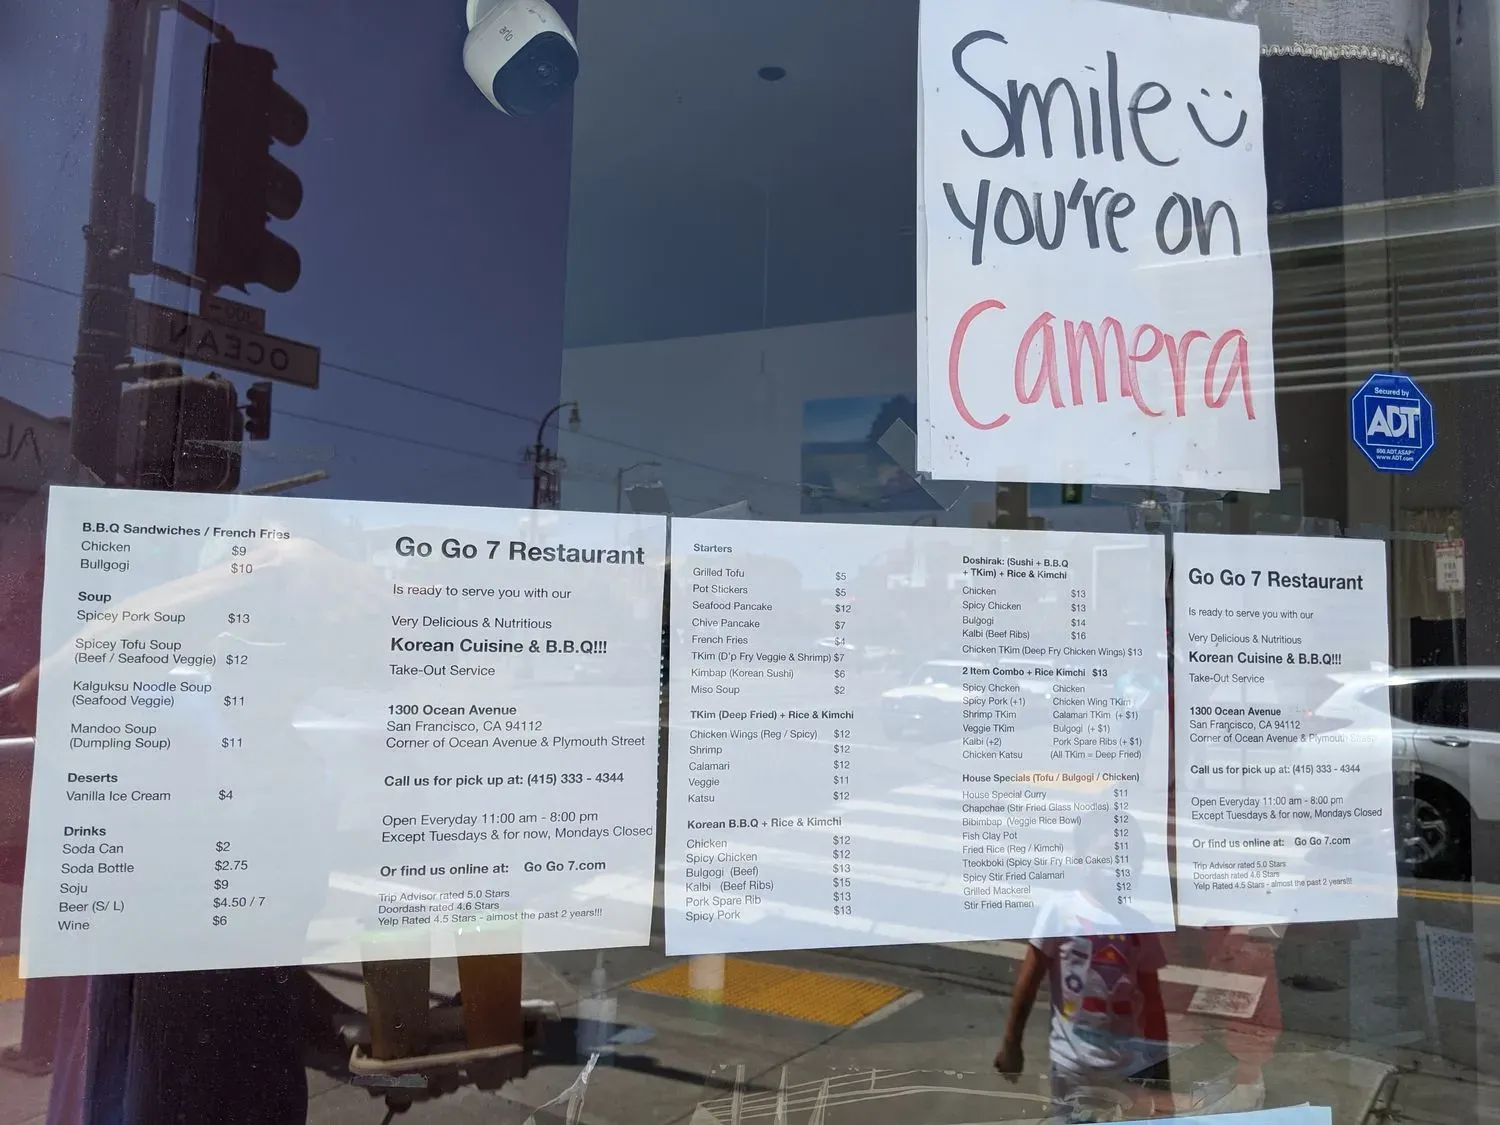 arlo
Smile
you're on
Camera
Secured by
ADT
www.ADT.com
OCEAN
B.B.Q Sandwiches / French Fries
Chicken $9
Bullgogi $10
Soup
Spicey Pork Soup $13
Spicey Tofu Soup
(Beef / Seafood Veggie) $12
Kalguksu Noodle Soup
(Seafood Veggie) $11
Mandoo Soup
(Dumpling Soup) $11
Deserts
Vanilla Ice Cream $4
Drinks
Soda Can $2
Soda Bottle $2.75
Soju $9
Beer (S/ L) $4.50 / 7
Wine $6
Go Go 7 Restaurant
Is ready to serve you with our
Very Delicious & Nutritious
Korean Cuisine & B.B.Q!!!
Take-Out Service
1300 Ocean Avenue
San Francisco, CA 94112
Corner of Ocean Avenue & Plymouth Street
Call us for pick up at: (415) 333 - 4344
Open Everyday 11:00 am - 8:00 pm
Except Tuesdays & for now, Mondays Closed
Or find us online at: Go Go 7.com
Trip Advisor rated 5.0 Stars
Doordash rated 4.6 Stars
Yelp Rated 4.5 Stars - almost the past 2 years!!!
Starters
Grilled Tofu $5
Pot Stickers $5
Seafood Pancake $12
Chive Pancake $7
French Fries $4
TKim (D'p Fry Veggie & Shrimp) $7
Kimbap (Korean Sushi) $6
Miso Soup $2
TKim (Deep Fried) + Rice & Kimchi
Chicken Wings (Reg / Spicy) $12
Shrimp $12
Calamari $12
Veggie $11
Katsu $12
Korean B.B.Q + Rice & Kimchi
Chicken $12
Spicy Chicken $12
Bulgogi (Beef) $13
Kalbi (Beef Ribs) $15
Pork Spare Rib $13
Spicy Pork $13
Doshirak: (Sushi + B.B.Q
+ TKim) + Rice & Kimchi
Chicken $13
Spicy Chicken $13
Bulgogi $14
Kalbi (Beef Ribs) $16
Chicken TKim (Deep Fry Chicken Wings) $13
2 Item Combo + Rice Kimchi $13
Spicy Chcken Chicken
Spicy Pork (+1) Chicken Wing TKim
Shrimp TKim Calamari TKim (+ $1)
Veggie TKim Bulgogi (+ $1)
Kalbi (+2) Pork Spare Ribs (+ $1)
Chicken Katsu (All TKim = Deep Fried)
House Specials (Tofu / Bulgogi / Chicken)
House Special Curry $11
Chapchae (Stir Fried Glass Noodles) $12
Bibimbap (Veggie Rice Bowl) $12
Fish Clay Pot $12
Fried Rice (Reg / Kimchi) $11
Tteokboki (Spicy Stir Fry Rice Cakes) $11
Spicy Stir Fried Calamari $13
Grilled Mackerel $12
Stir Fried Ramen $11
Go Go 7 Restaurant
Is ready to serve you with our
Very Delicious & Nutritious
Korean Cuisine & B.B.Q!!!
Take-Out Service
1300 Ocean Avenue
San Francisco, CA 94112
Corner of Ocean Avenue & Plymouth Street
Call us for pick up at: (415) 333 - 4344
Open Everyday 11:00 am - 8:00 pm
Except Tuesdays & for now, Mondays Closed
Or find us online at: Go Go 7.com
Trip Advisor rated 5.0 Stars
Doordash rated 4.6 Stars
Yelp Rated 4.5 Stars - almost the past 2 years!!!